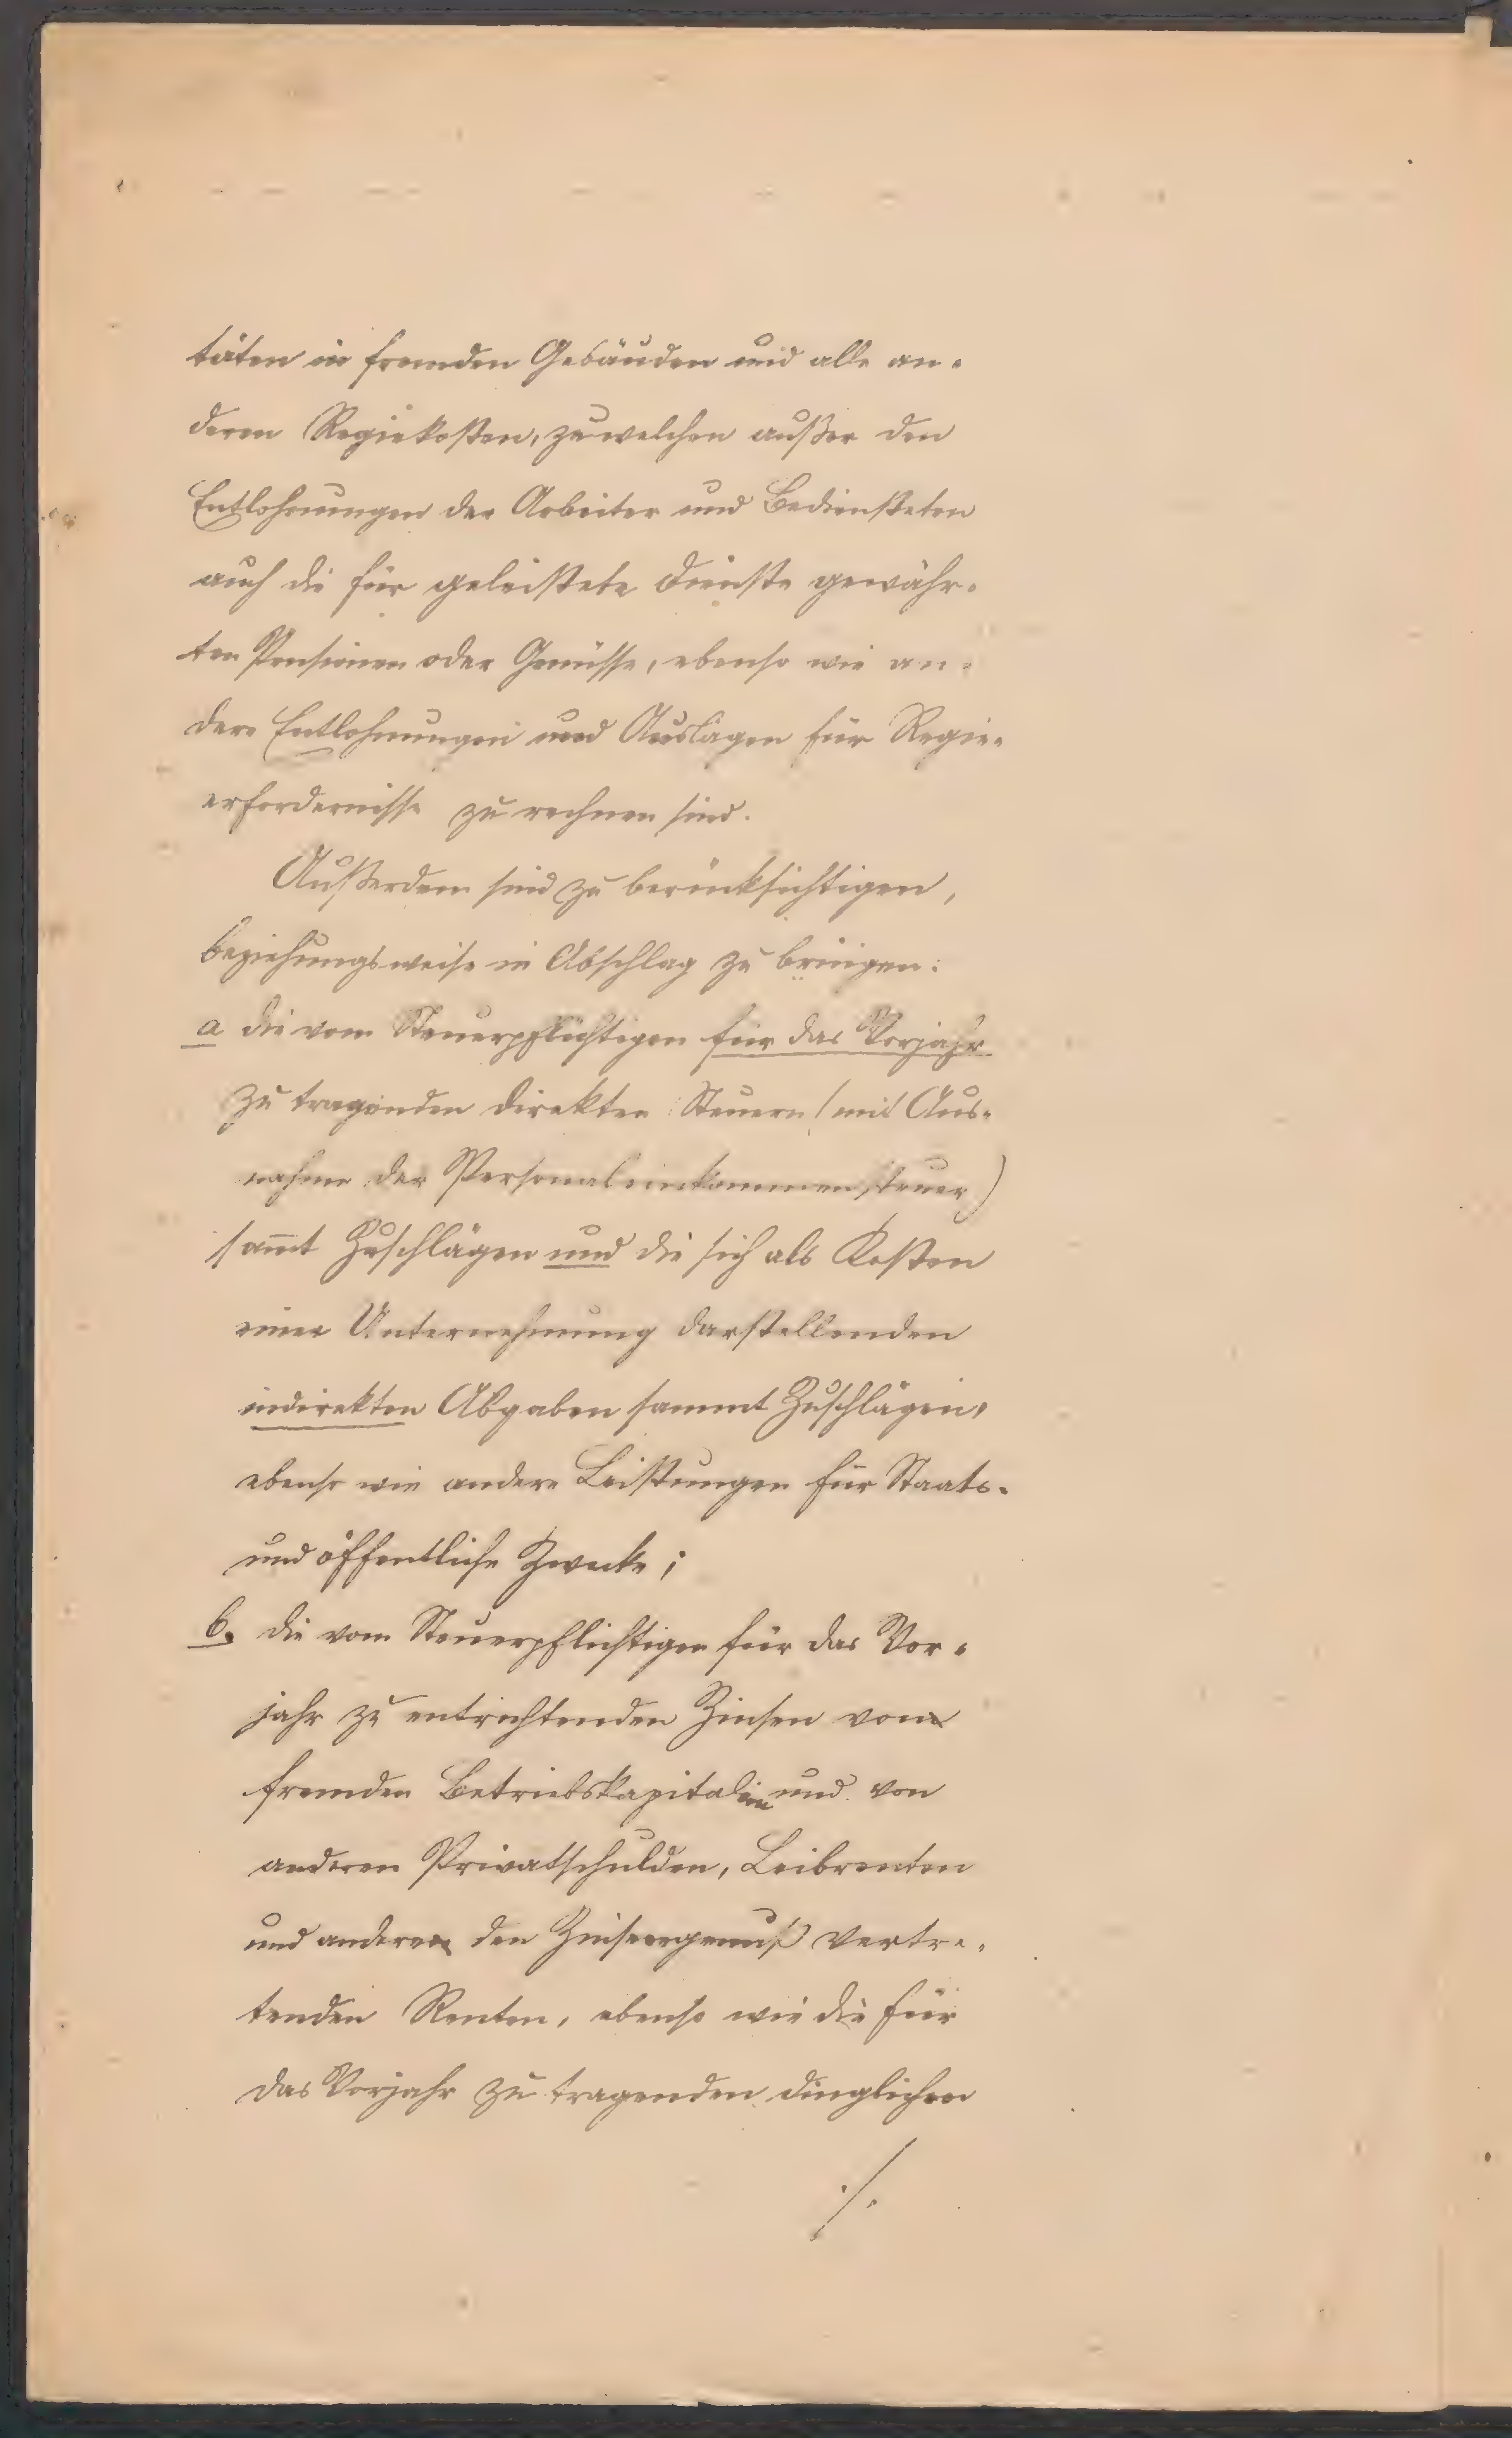 täten in fremden Gebäuden und alle an-
deren Regiekosten, zu welchen außer den
Entlohnungen der Arbeiter und Bediensteten
auch die für geleistete Dienste gewähr-
ten Pensionen oder Genüsse, ebenso wie an-
dere Entlohnungen und Auslagen für Regie-
erfordernisse zu rechnen sind.
Außerdem sind zu berücksichtigen,
beziehungsweise in Abschlag zu bringen:
a die vom Steuerpflichtigen für das Vorjahr
zu tragenden direkten Steuern (mit Aus-
nahme der Personaleinkommensteuer)
sam̅t Zuschlägen und die sich als Kosten
einer Unternehmung darstellenden
indirekten Abgaben sammt Zuschlägen,
ebenso wie andere Leistungen für Staats-
und öffentliche Zwecke;
b. die vom Steuerpflichtigen für das Vor-
jahr zu entrichtenden Zinsen von
fremden Betriebskapitalien und von
anderen Privatschulden, Leibrenten
und anderen den Zinsengenuß vertre-
tenden Renten, ebenso wie die für
das Vorjahr zu tragenden dinglichen
./.